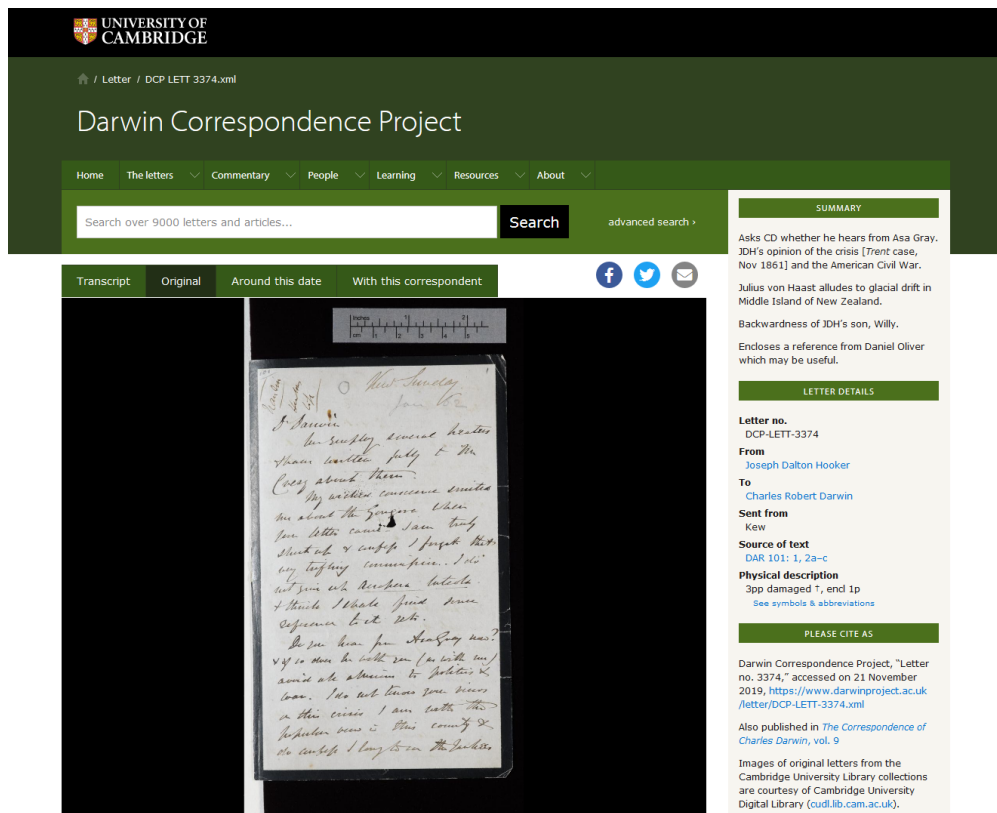 UNIVERSITY OF
CAMBRIDGE
/ Letter / DCP LETT 3374.xml
Darwin Correspondence Project
Home The letters Commentary People Learning Resources About
Search over 9000 letters and articles...
Search
advanced search ›
Transcript Original Around this date With this correspondent
inches 1 2
cm 1 2 3 4 5
Kew Sunday
Jan /62
1
Dr Darwin
We employ several heaters
& have written fully to Mr
about them.
My wicked conscience smited
me about the Gongora when
your letter came I am truly
& confess I forgot that
very trifling commission. I do
not give up Acropera luteola
& think I shall find some
reference to it yet.
Do you hear from Asa Gray now?
& if so does he with you (as with me)
avoid all allusions to politics &
war. I do not know your views
on this crisis I am with the
popular view in this county &
do confess I long to the Yankees
SUMMARY
Asks CD whether he hears from Asa Gray.
JDH's opinion of the crisis [Trent case,
Nov 1861] and the American Civil War.
Julius von Haast alludes to glacial drift in
Middle Island of New Zealand.
Backwardness of JDH's son, Willy.
Encloses a reference from Daniel Oliver
which may be useful.
LETTER DETAILS
Letter no.
DCP-LETT-3374
From
Joseph Dalton Hooker
To
Charles Robert Darwin
Sent from
Kew
Source of text
DAR 101: 1, 2a–c
Physical description
3pp damaged †, encl 1p
See symbols & abbreviations
PLEASE CITE AS
Darwin Correspondence Project, “Letter
no. 3374,” accessed on 21 November
2019, https://www.darwinproject.ac.uk
/letter/DCP-LETT-3374.xml
Also published in The Correspondence of
Charles Darwin, vol. 9
Images of original letters from the
Cambridge University Library collections
are courtesy of Cambridge University
Digital Library (cudl.lib.cam.ac.uk).